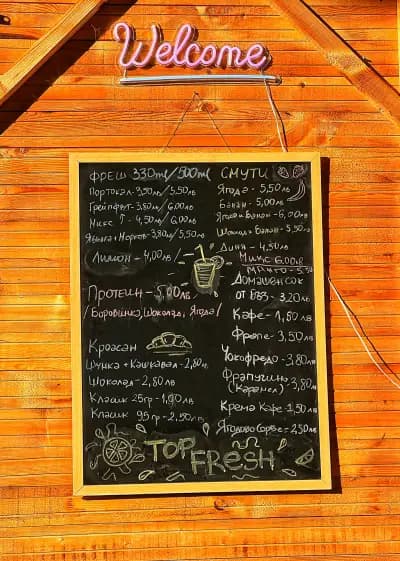 Welcome
ФРЕШ 330ml/500ml
Портокал - 3,50лв/5,50лв
Грейпфут - 3,80лв/6,00лв
Микс - 4,50лв/6,00лв
Ябълка + Морков - 3,80лв/5,50
Лимон - 4,00лв/
Протеин - 5,00лв
/Боровинка, Шоколад, Ягода/
Кроасан
Шунка + Кашкавал - 2,80лв
Шоколад - 2,80лв
Класик 25гр - 1,90лв
Класик 95гр - 2,50лв
СМУТИ
Ягода - 5,50лв
Банан - 5,00лв
Ягода и Банан - 6,00лв
Шоколад Банан - 5,50лв
Диня - 4,50лв
Микс 6.00лв
Манго - 5.50
Домашен сок
от бъз - 3,20лв
Кафе - 1,50лв
Фрапе - 3,50лв
Чокофредо - 3,80лв
Фрапучино - 3,80лв
(Карамел)
Крема Кафе - 1,50лв
Ягодово Сорбе - 2,50лв
TOP
FRESH